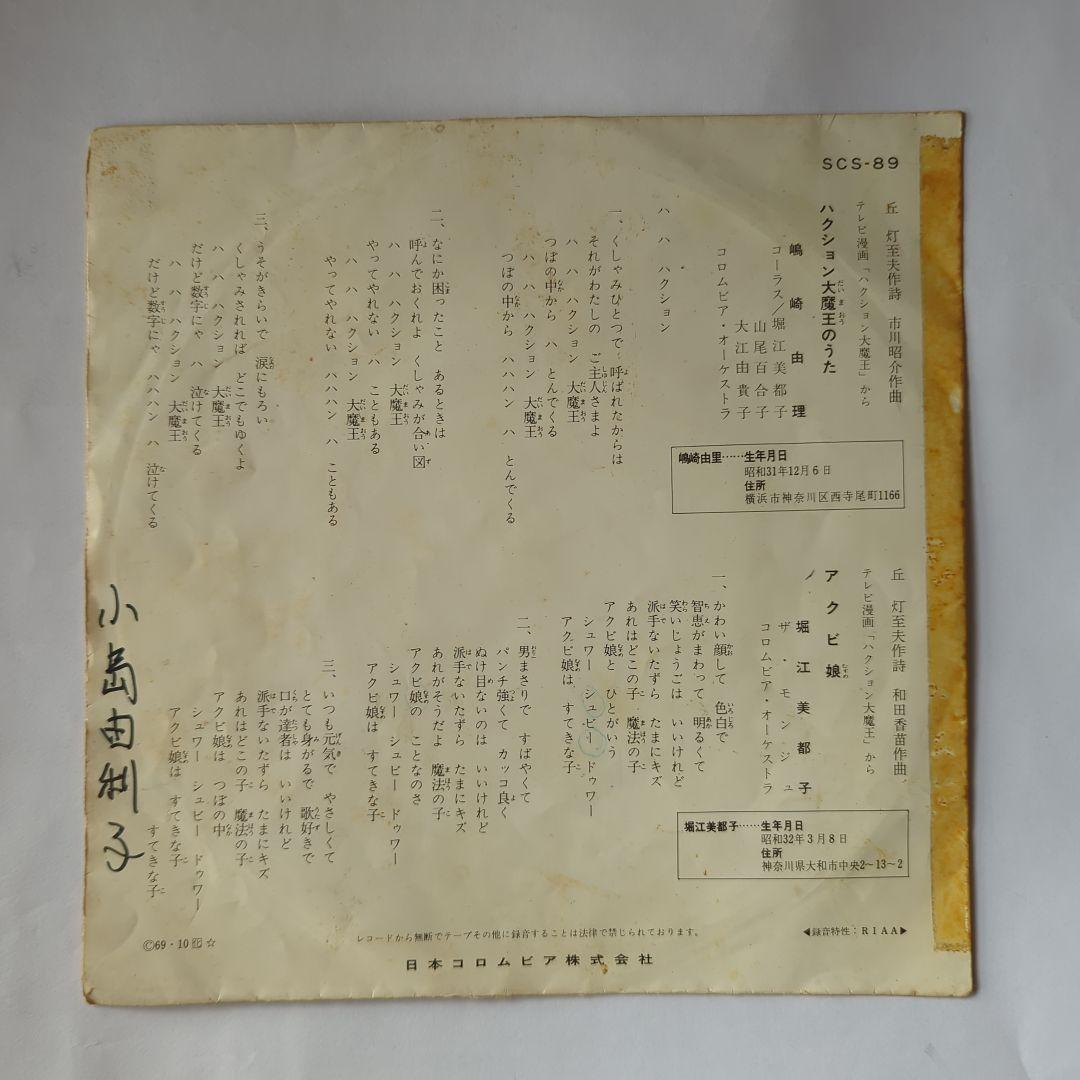 SCS-89
丘 灯至夫作詩 市川昭介作曲
テレビ漫画「ハクション大魔王」から
ハクション大魔王のうた
嶋崎由理
コーラス/堀江美都子
山尾百合子
大江由貴子
コロムビア・オーケストラ
ハ ハ ハクション
一、くしゃみひとつで 呼ばれたからは
それがわたしの ご主人さまよ
ハ ハ ハクション 大魔王
つぼの中から ハ とんでくる
ハ ハ ハクション 大魔王
つぼの中から ハハハン ハ とんでくる
二、なにか困ったこと あるときは
呼んでおくれよ くしゃみが合い図
ハ ハ ハクション 大魔王
やってやれない ハ こともある
ハ ハ ハクション 大魔王
やってやれない ハハハン ハ こともある
三、うそがきらいで 涙にもろい
くしゃみされれば どこでもゆくよ
ハ ハ ハクション 大魔王
だけど数字にゃ ハ 泣けてくる
ハ ハ ハクション 大魔王
だけど数字にゃ ハハハン ハ 泣けてくる
嶋崎由里……生年月日
昭和31年12月6日
住所
横浜市神奈川区西寺尾町1166
丘 灯至夫作詩 和田香苗作曲
テレビ漫画「ハクション大魔王」から
アクビ娘
堀江美都子
ザ・モンジュ
コロムビア・オーケストラ
一、かわい顔して 色白で
智恵がまわって 明るくて
笑いじょうごは いいけれど
派手ないたずら たまにキズ
あれはどこの子 魔法の子
アクビ娘と ひとがいう
シュワー シュビー ドゥワー
アクビ娘は すてきな子
二、男まさりで すばやくて
パンチ強くて カッコ良く
ぬけ目ないのは いいけれど
派手ないたずら たまにキズ
あれがそうだよ 魔法の子
アクビ娘の ことなのさ
シュワー シュビー ドゥワー
アクビ娘は すてきな子
三、いつも元気で やさしくて
とても身がるで 歌好きで
口が達者は いいけれど
派手ないたずら たまにキズ
あれはどこの子 魔法の子
アクビ娘は つぼの中
シュワー シュビー ドゥワー
アクビ娘は すてきな子
すてきな子
堀江美都子……生年月日
昭和32年3月8日
住所
神奈川県大和市中央2〜13〜2
小島由利子
Ⓒ69・10 ☆
レコードから無断でテープその他に録音することは法律で禁じられております。
◀録音特性:RIAA▶
日本コロムビア株式会社